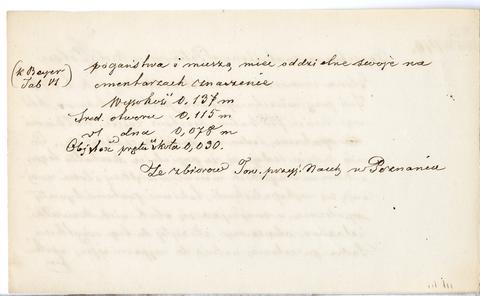 (k Beyer
Tab VI)
pogaństwa i muszą mieć oddzielne swoje na
cmentarzach oznaczenie
Wysokość 0,137 m
Śred. otworu 0,115 m
" dna 0,078 m
0,030.
Ze zbiorów Tow. przyj. Nauk w Poznaniu